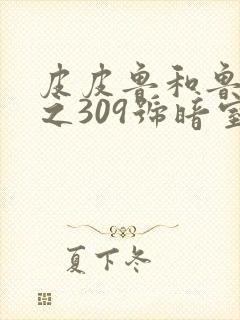 皮皮鲁和鲁
之309號暗室
夏下冬